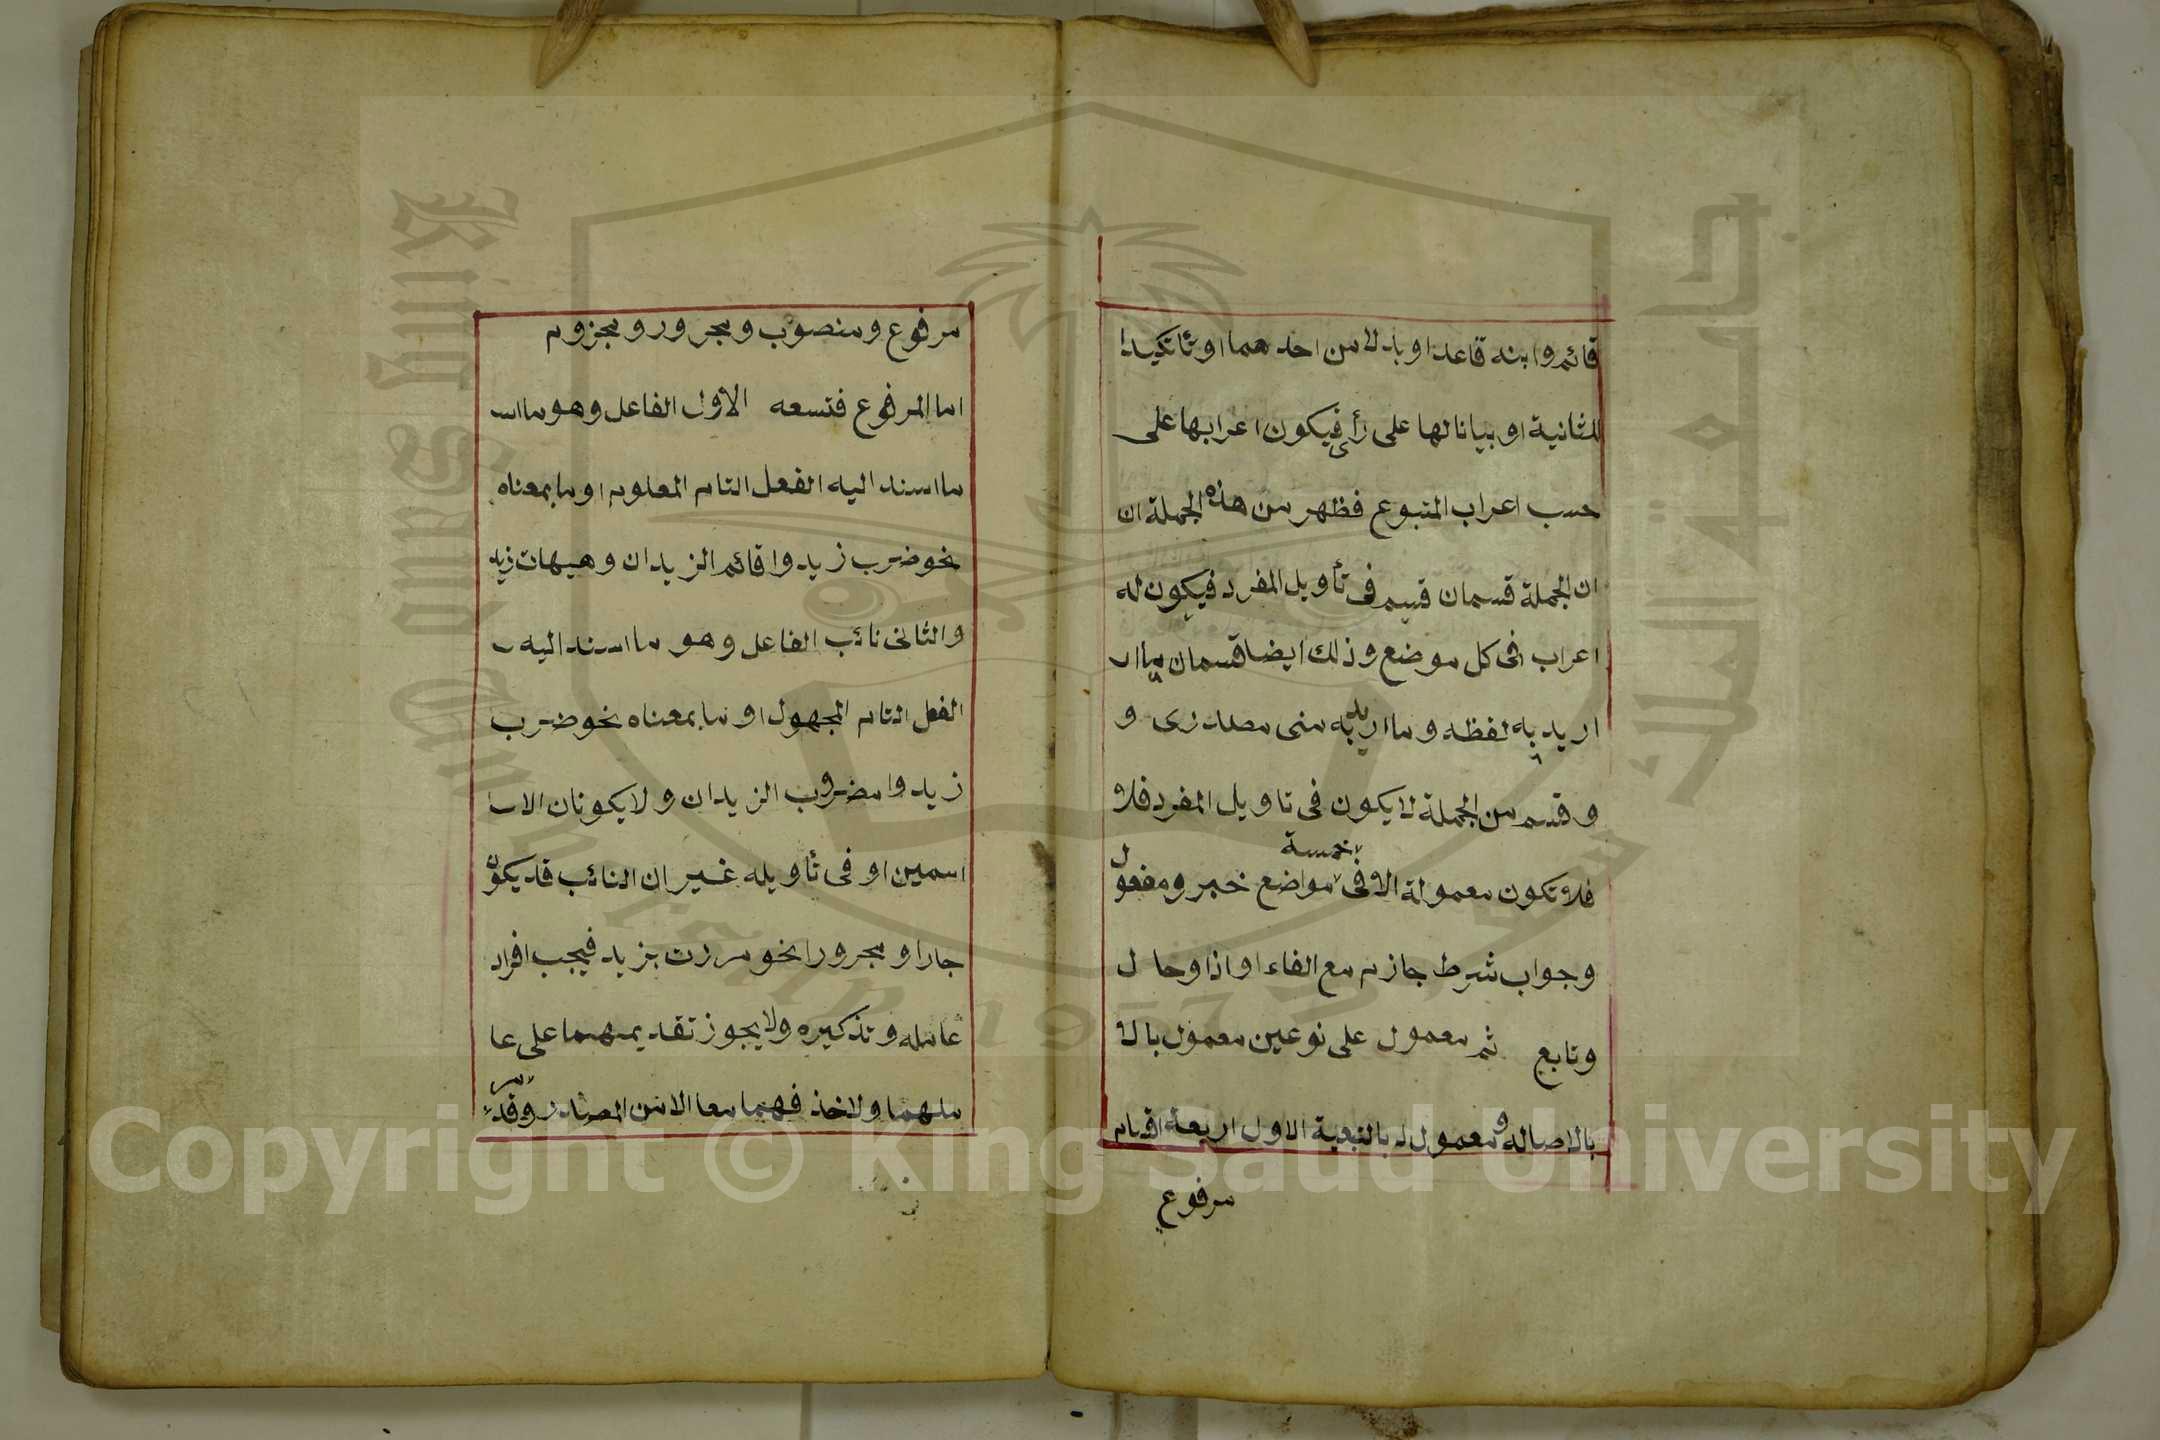 قائم وابنه قاعد او بدلا من احدهما او تأكيدا
للثانية او بيانا لها على رأى فيكون اعرابها على
حسب اعراب المتبوع فظهر من هذه الجملة ان
ان الجملة قسمان قسم فى تأويل المفرد فيكون له
اعراب فى كل موضع وذلك ايضا قسمان ما ار
اريد به لفظه وما اريد به معنى مصدرى و
وقسم من الجملة لا يكون فى تاويل المفرد فلا
فلا تكون معمولة الا فى خمسة مواضع خبر ومفعول
وجواب شرط جازم مع الفاء او اذا وحال
وتابع ثم معمول على نوعين معمول بالا
بالاصاله ومعمول بالتبعية الاول اربعة اقسام
مرفوع
مرفوع ومنصوب ومجرور ومجزوم
اما المرفوع فتسعه الاول الفاعل وهو ما اسـ
ما اسند اليه الفعل التام المعلوم او ما بمعناه
نحو ضرب زيد واقائم الزيدان وهيهات زيد
والثانى نائب الفاعل وهو ما اسند اليه
الفعل التام المجهول او ما بمعناه نحو ضرب
زيد وامضروب الزيدان ولا يكونان الا سـ
اسمين او فى تأويله غير ان النائب قد يكون
جارا ومجرورا نحو مررت بزيد فيجب افراد
عامله وتذكيره ولا يجوز تقديمهما على عا
ملهما ولا حذفهما معا الا من المصدر وقد مر
Copyright © King Saud University
King Saud University
جامعة الملك سعود
1957